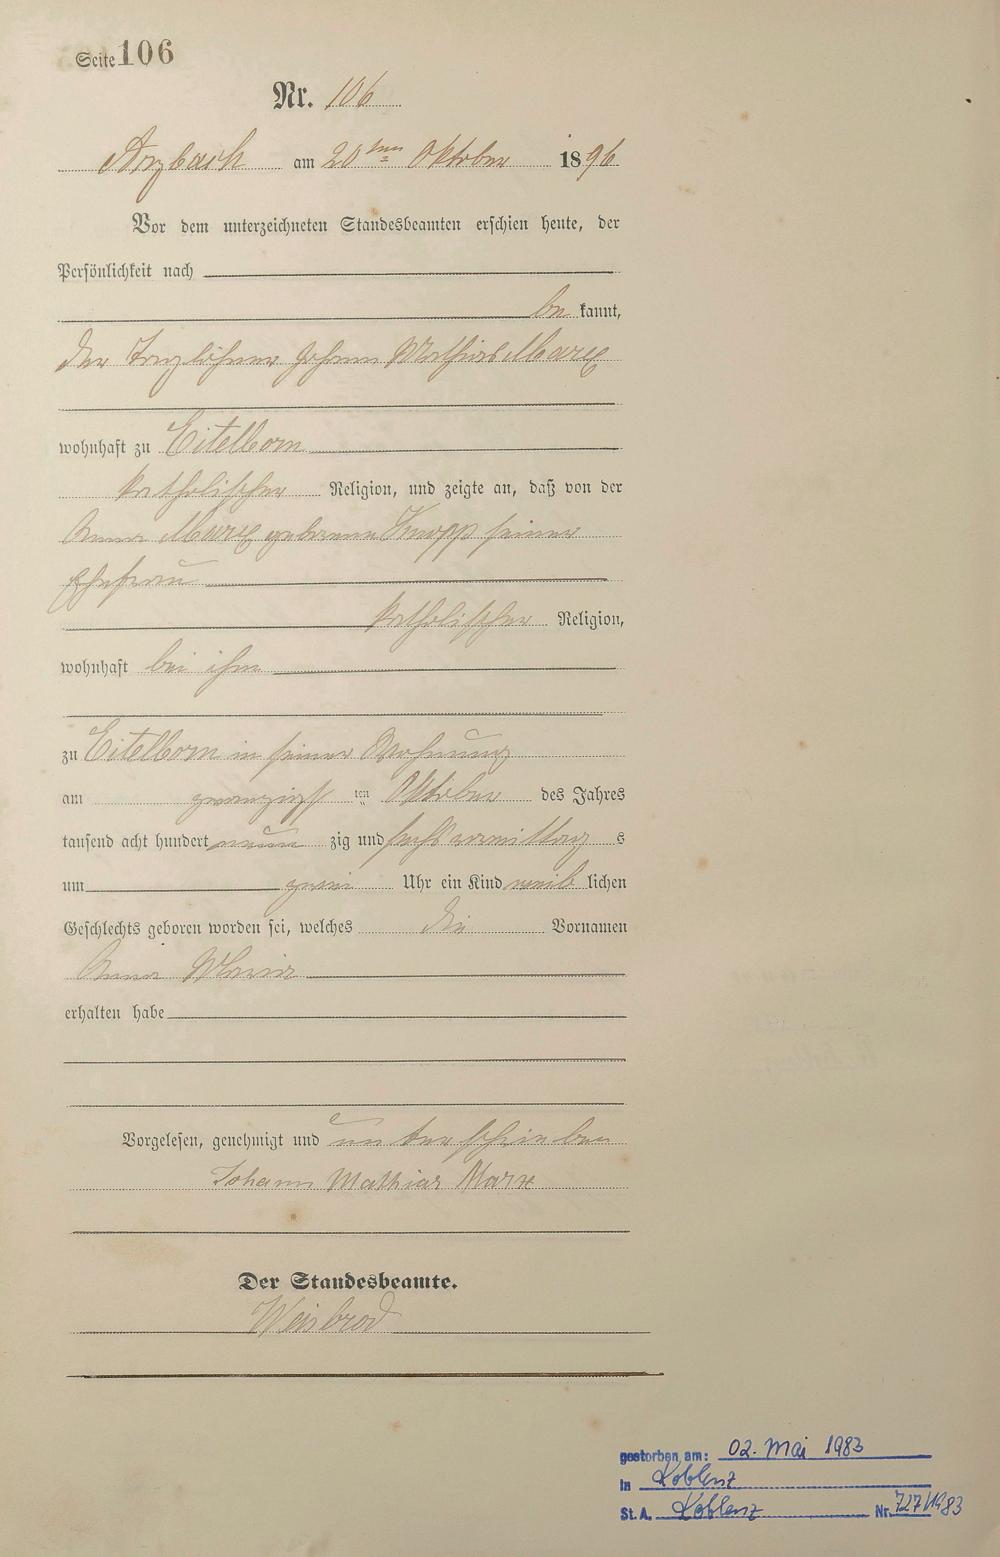 Seite 106
Nr. 106
Arzbach am 20ten Oktober 1896
Vor dem unterzeichneten Standesbeamten erschien heute, der
Persönlichkeit nach
be kannt,
der Taglöhner Johann Mathias Marx
wohnhaft zu Eitelborn
katholischer Religion, und zeigte an, daß von der
Anna Marx geborene Knopp seiner
Ehefrau
katholischer Religion,
wohnhaft bei ihm
zu Eitelborn in seiner Wohnung
am zwanzigst ten Oktober des Jahres
tausend acht hundert neun zig und sechs vormittag s
um zwei Uhr ein Kind weib lichen
Geschlechts geboren worden sei, welches die Vornamen
Anna Maria
erhalten habe
Vorgelesen, genehmigt und unterschrieben
Johann Mathias Marx
Der Standesbeamte.
Weisbrod
gestorben am: 02. Mai 1983
in Koblenz
St. A. Koblenz Nr. 727/1983